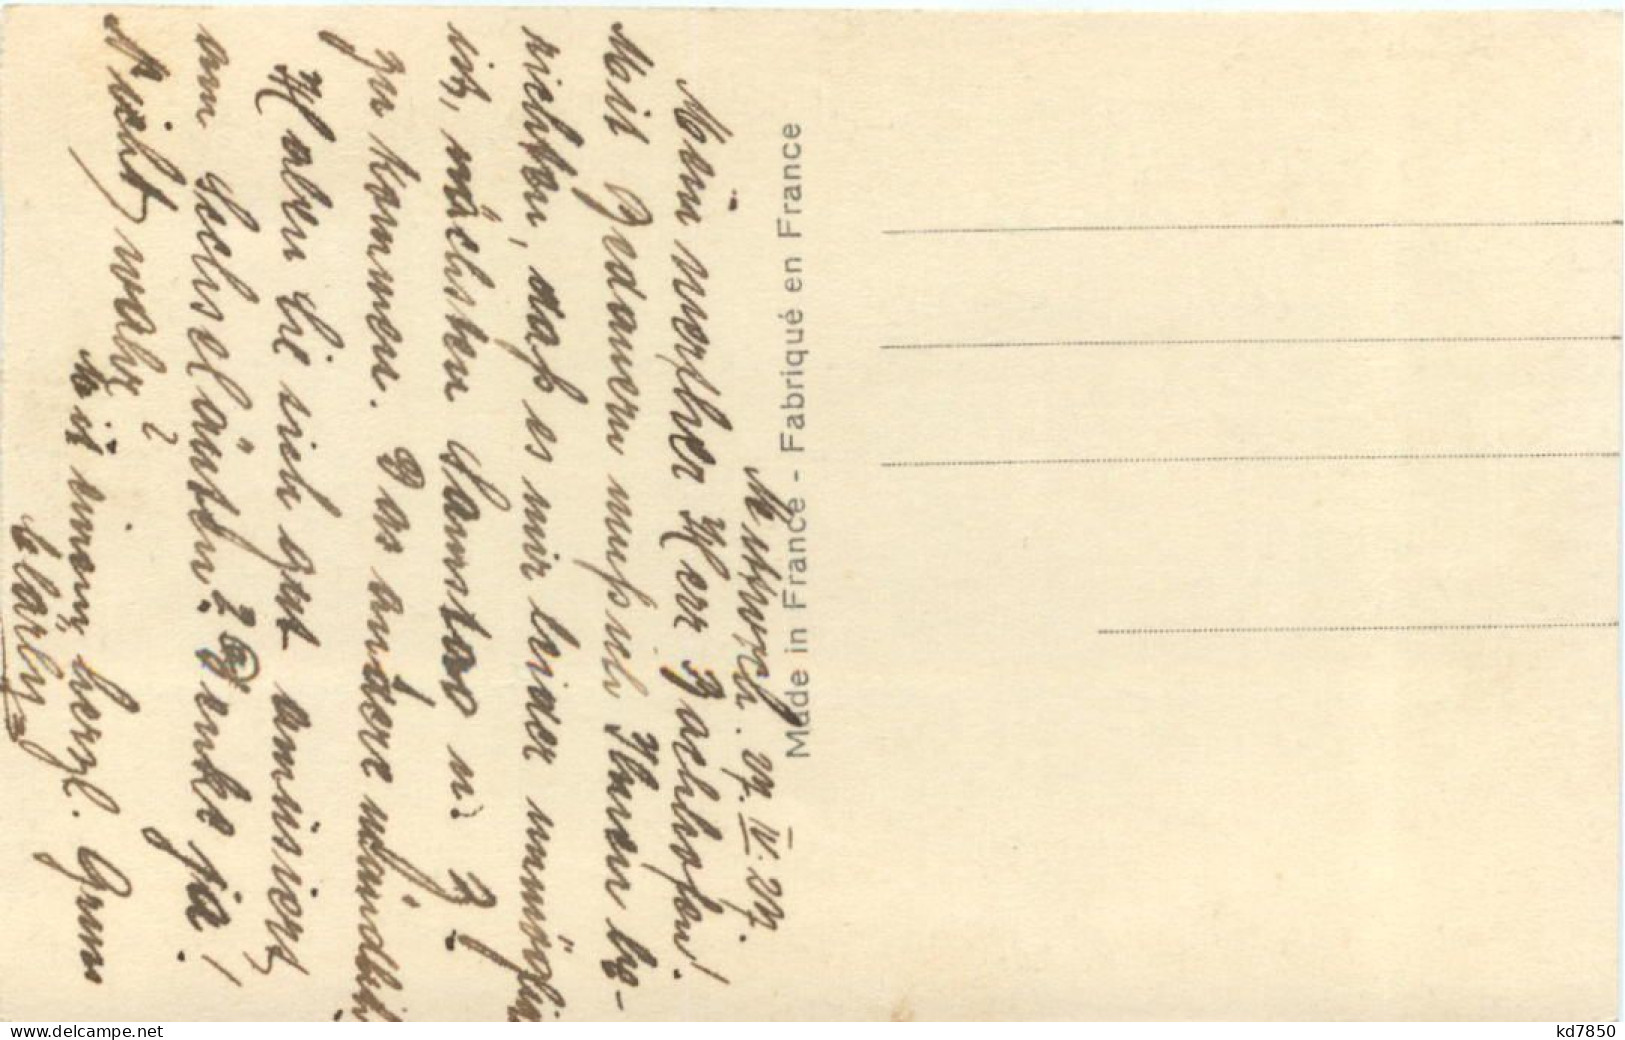 Mittwoch. 27. IV. 27.
Mein werther Herr Bachhofen!
Mit Bedauern muß ich Ihnen be-
richten, daß es mir leider unmöglich
ist, nächsten Samstag n. Z.
zu kommen. Das andere mündlich
Haben Sie sich gut amüsiert
am Sechseläuten? Denke ja!
Nicht wahr?
Mit einem herzl. Gruss
Clärly
Made in France - Fabriqué en France
www.delcampe.net
kd7850